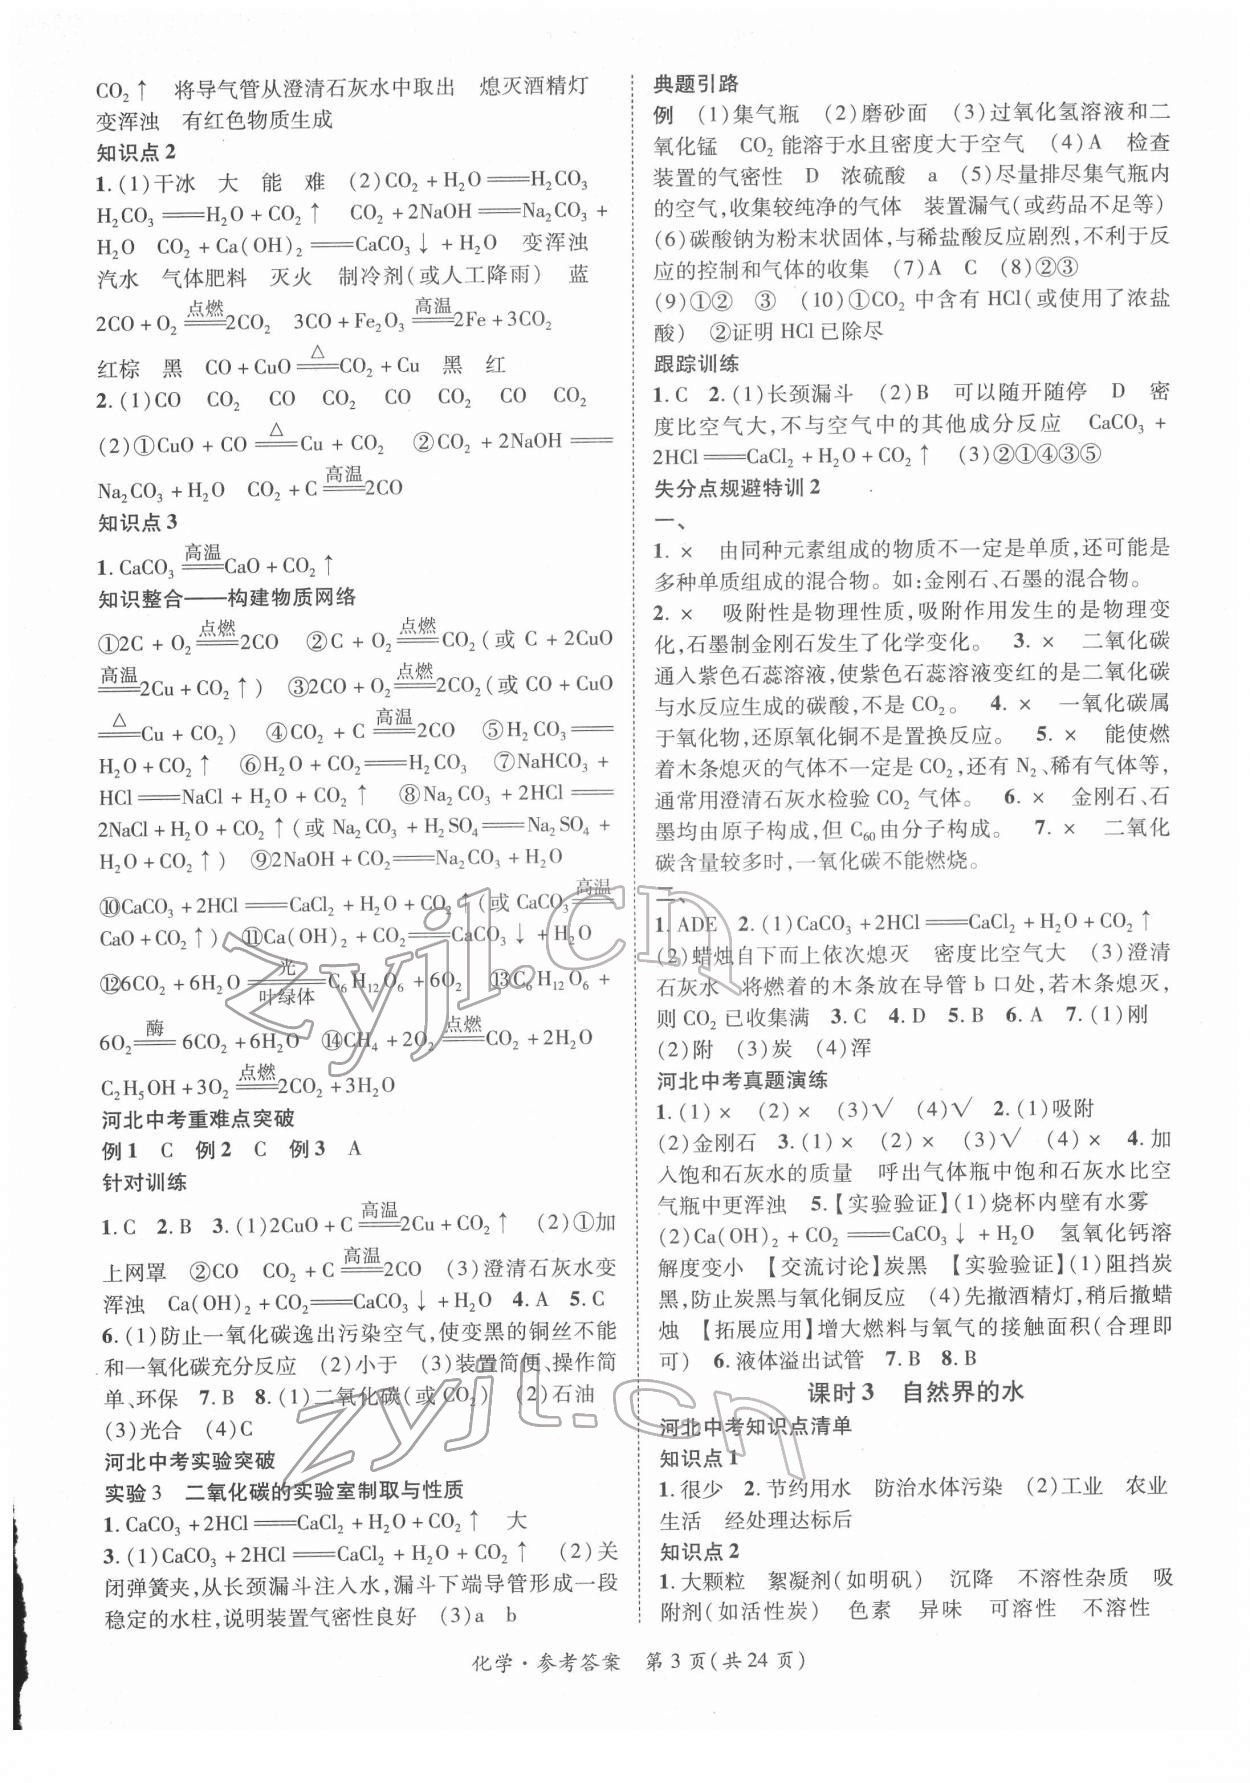 CO₂↑ 将导气管从澄清石灰水中取出 熄灭酒精灯
变浑浊 有红色物质生成
知识点 2
1. (1)干冰 大 能 难 (2)CO₂+H₂O══H₂CO₃
H₂CO₃══H₂O+CO₂↑ CO₂+2NaOH══Na₂CO₃+
H₂O CO₂+Ca(OH)₂══CaCO₃↓+H₂O 变浑浊
汽水 气体肥料 灭火 制冷剂(或人工降雨) 蓝
2CO+O₂═点燃═2CO₂ 3CO+Fe₂O₃═高温═2Fe+3CO₂
红棕 黑 CO+CuO═△═CO₂+Cu 黑 红
2. (1)CO CO₂ CO CO₂ CO CO₂ CO CO₂
(2)①CuO+CO═△═Cu+CO₂ ②CO₂+2NaOH══
Na₂CO₃+H₂O CO₂+C═高温═2CO
知识点 3
1. CaCO₃═高温═CaO+CO₂↑
知识整合——构建物质网络
①2C+O₂═点燃═2CO ②C+O₂═点燃═CO₂(或 C+2CuO
═高温═2Cu+CO₂↑) ③2CO+O₂═点燃═2CO₂(或 CO+CuO
═△═Cu+CO₂) ④CO₂+C═高温═2CO ⑤H₂CO₃══
H₂O+CO₂↑ ⑥H₂O+CO₂══H₂CO₃ ⑦NaHCO₃+
HCl══NaCl+H₂O+CO₂↑ ⑧Na₂CO₃+2HCl══
2NaCl+H₂O+CO₂↑(或 Na₂CO₃+H₂SO₄══Na₂SO₄+
H₂O+CO₂↑) ⑨2NaOH+CO₂══Na₂CO₃+H₂O
⑩CaCO₃+2HCl══CaCl₂+H₂O+CO₂↑(或 CaCO₃═高温═
CaO+CO₂↑) ⑪Ca(OH)₂+CO₂══CaCO₃↓+H₂O
⑫6CO₂+6H₂O═光 叶绿体═C₆H₁₂O₆+6O₂ ⑬C₆H₁₂O₆+
6O₂═酶═6CO₂+6H₂O ⑭CH₄+2O₂═点燃═CO₂+2H₂O
C₂H₅OH+3O₂═点燃═2CO₂+3H₂O
河北中考重难点突破
例 1 C 例 2 C 例 3 A
针对训练
1. C 2. B 3. (1)2CuO+C═高温═2Cu+CO₂↑ (2)①加
上网罩 ②CO CO₂+C═高温═2CO (3)澄清石灰水变
浑浊 Ca(OH)₂+CO₂══CaCO₃↓+H₂O 4. A 5. C
6. (1)防止一氧化碳逸出污染空气,使变黑的铜丝不能
和一氧化碳充分反应 (2)小于 (3)装置简便、操作简
单、环保 7. B 8. (1)二氧化碳(或 CO₂) (2)石油
(3)光合 (4)C
河北中考实验突破
实验 3 二氧化碳的实验室制取与性质
1. CaCO₃+2HCl══CaCl₂+H₂O+CO₂↑ 大
3. (1)CaCO₃+2HCl══CaCl₂+H₂O+CO₂↑ (2)关
闭弹簧夹,从长颈漏斗注入水,漏斗下端导管形成一段
稳定的水柱,说明装置气密性良好 (3)a b
典题引路
例 (1)集气瓶 (2)磨砂面 (3)过氧化氢溶液和二
氧化锰 CO₂ 能溶于水且密度大于空气 (4)A 检查
装置的气密性 D 浓硫酸 a (5)尽量排尽集气瓶内
的空气,收集较纯净的气体 装置漏气(或药品不足等)
(6)碳酸钠为粉末状固体,与稀盐酸反应剧烈,不利于反
应的控制和气体的收集 (7)A C (8)②③
(9)①② ③ (10)①CO₂ 中含有 HCl(或使用了浓盐
酸) ②证明 HCl 已除尽
跟踪训练
1. C 2. (1)长颈漏斗 (2)B 可以随开随停 D 密
度比空气大,不与空气中的其他成分反应 CaCO₃+
2HCl══CaCl₂+H₂O+CO₂↑ (3)②①④③⑤
失分点规避特训 2
一、
1. × 由同种元素组成的物质不一定是单质,还可能是
多种单质组成的混合物。如:金刚石、石墨的混合物。
2. × 吸附性是物理性质,吸附作用发生的是物理变
化,石墨制金刚石发生了化学变化。 3. × 二氧化碳
通入紫色石蕊溶液,使紫色石蕊溶液变红的是二氧化碳
与水反应生成的碳酸,不是 CO₂。 4. × 一氧化碳属
于氧化物,还原氧化铜不是置换反应。 5. × 能使燃
着木条熄灭的气体不一定是 CO₂,还有 N₂、稀有气体等,
通常用澄清石灰水检验 CO₂ 气体。 6. × 金刚石、石
墨均由原子构成,但 C₆₀ 由分子构成。 7. × 二氧化
碳含量较多时,一氧化碳不能燃烧。
二、
1. ADE 2. (1)CaCO₃+2HCl══CaCl₂+H₂O+CO₂↑
(2)蜡烛自下而上依次熄灭 密度比空气大 (3)澄清
石灰水 将燃着的木条放在导管 b 口处,若木条熄灭,
则 CO₂ 已收集满 3. C 4. D 5. B 6. A 7. (1)刚
(2)附 (3)炭 (4)浑
河北中考真题演练
1. (1)× (2)× (3)√ (4)√ 2. (1)吸附
(2)金刚石 3. (1)× (2)× (3)√ (4)× 4. 加
入饱和石灰水的质量 呼出气体瓶中饱和石灰水比空
气瓶中更浑浊 5. 【实验验证】(1)烧杯内壁有水雾
(2)Ca(OH)₂+CO₂══CaCO₃↓+H₂O 氢氧化钙溶
解度变小 【交流讨论】炭黑 【实验验证】(1)阻挡炭
黑,防止炭黑与氧化铜反应 (4)先撤酒精灯,稍后撤蜡
烛 【拓展应用】增大燃料与氧气的接触面积(合理即
可) 6. 液体溢出试管 7. B 8. B
课时 3 自然界的水
河北中考知识点清单
知识点 1
1. 很少 2. 节约用水 防治水体污染 (2)工业 农业
生活 经处理达标后
知识点 2
1. 大颗粒 絮凝剂(如明矾) 沉降 不溶性杂质 吸
附剂(如活性炭) 色素 异味 可溶性 不溶性
化学·参考答案 第 3 页(共 24 页)
zyjl.cn
zyjl.cn